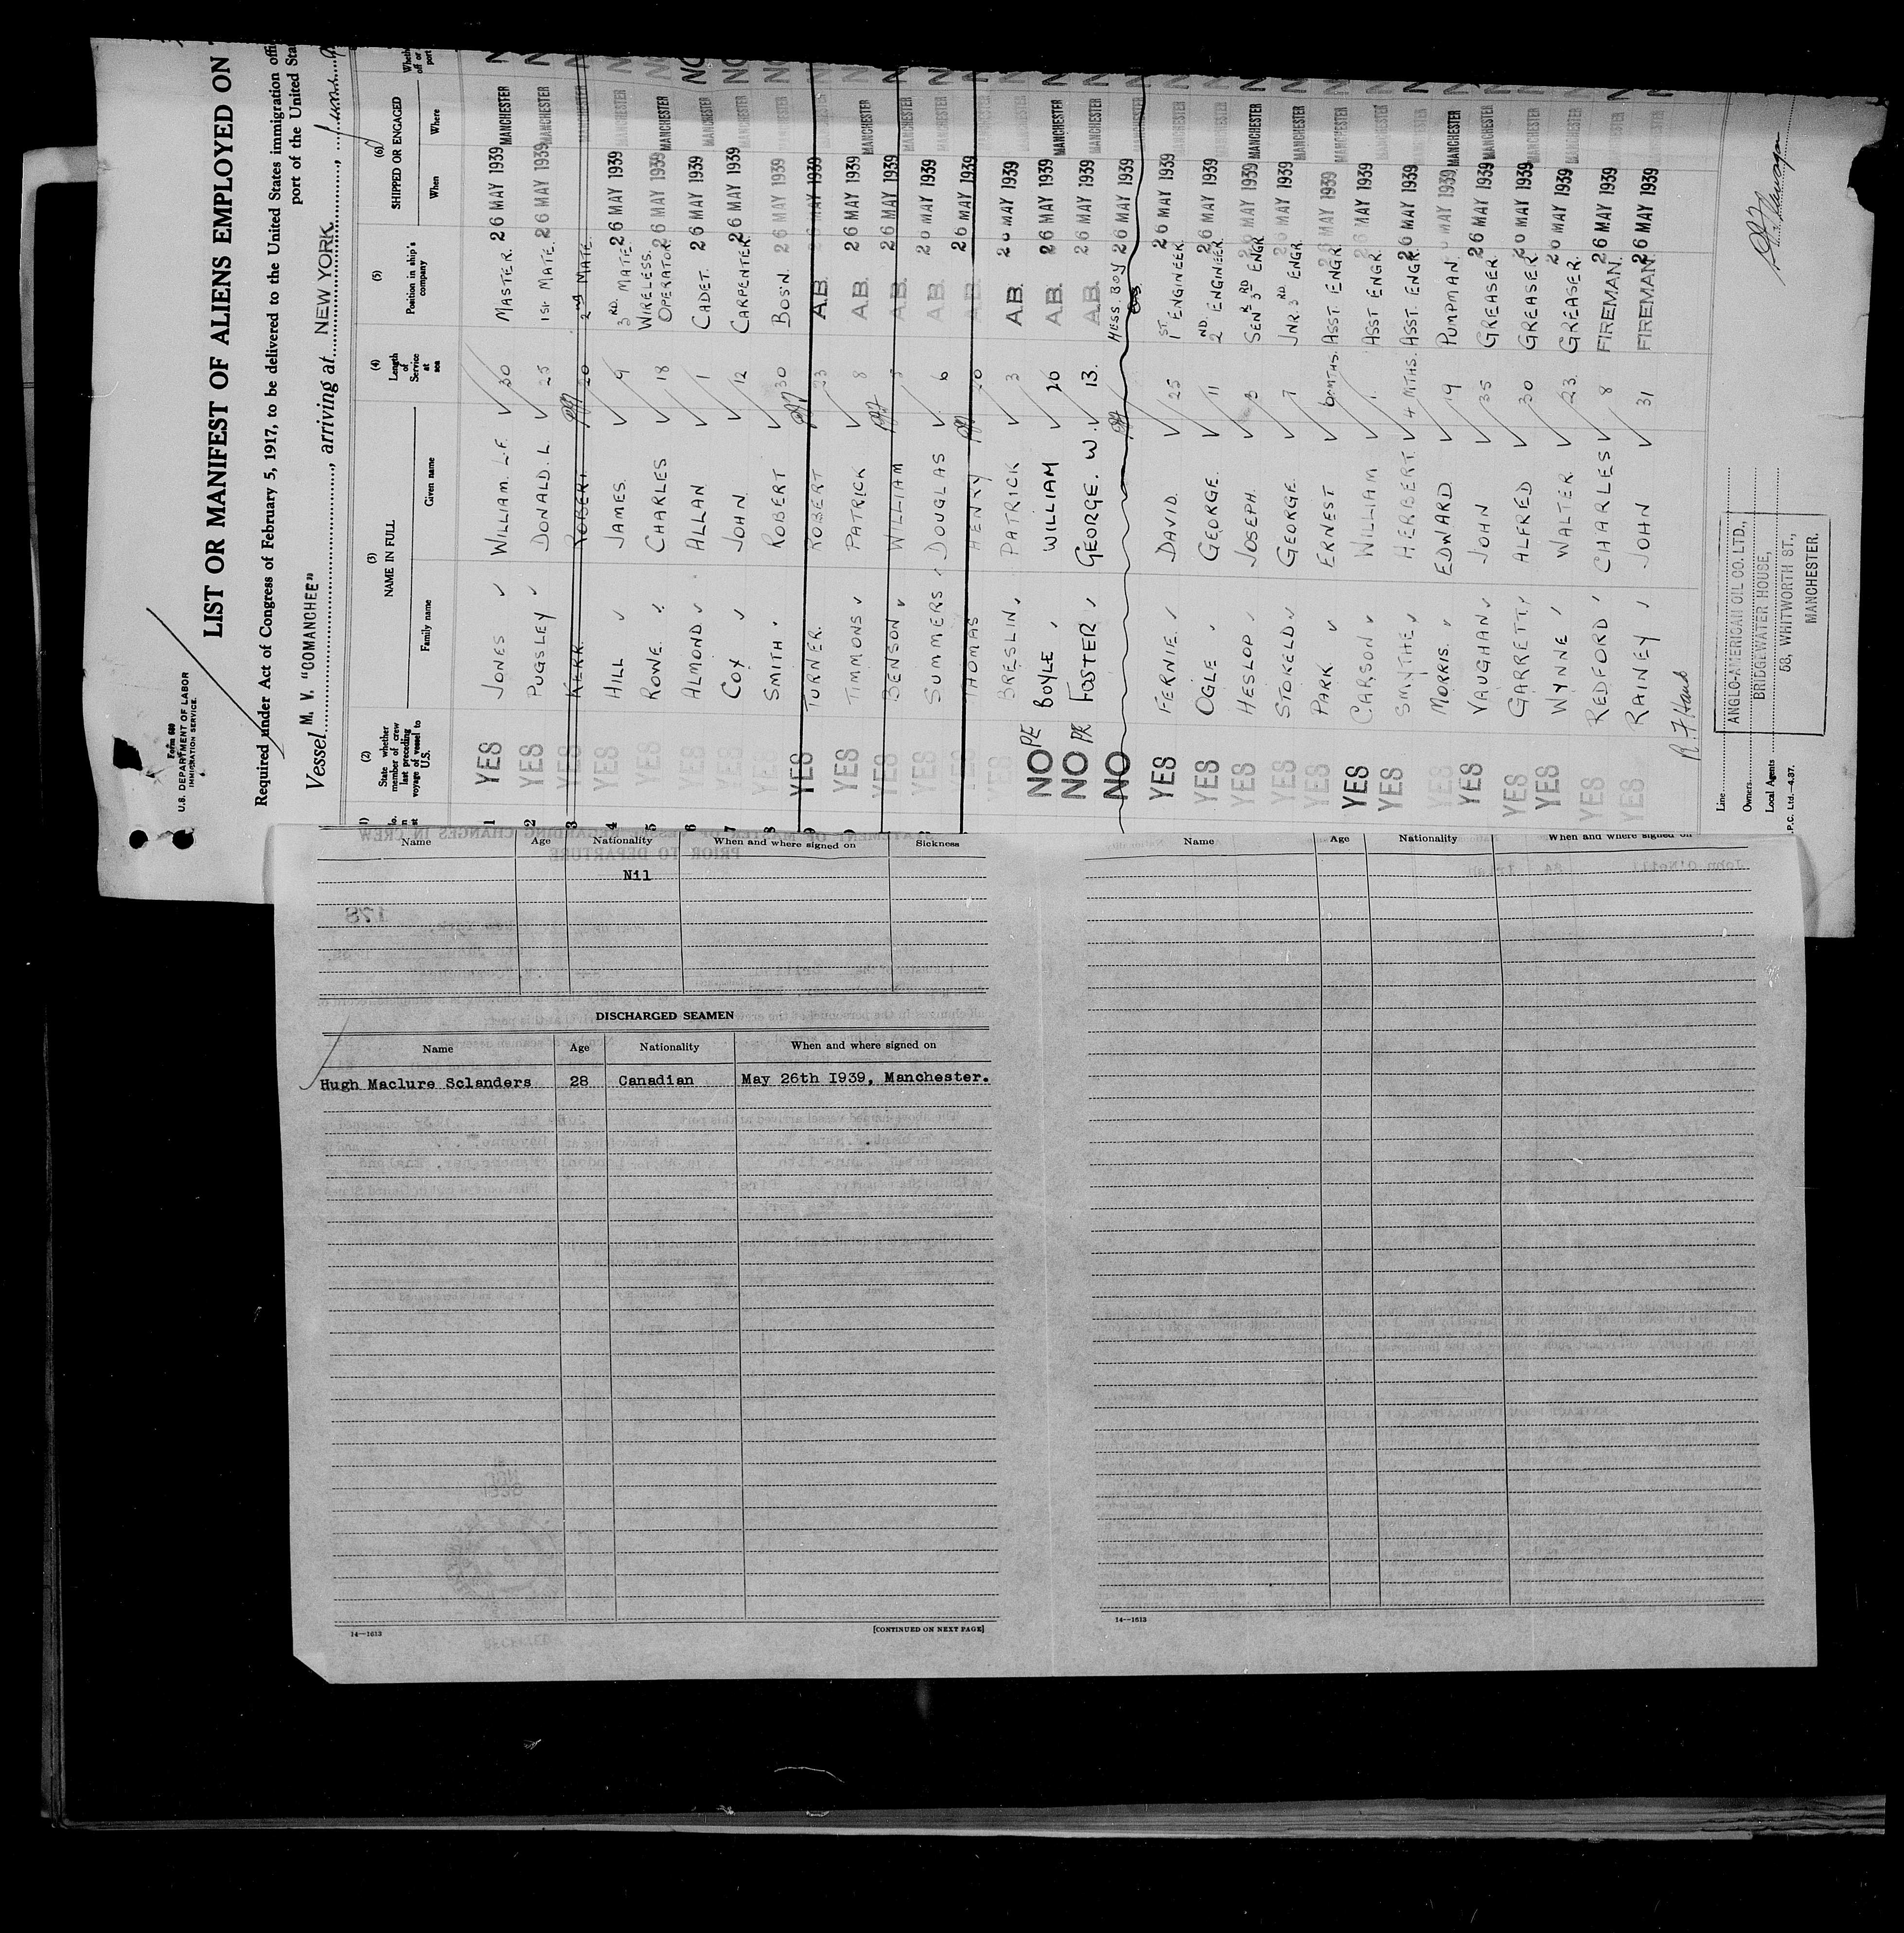 Form 689
U.S. DEPARTMENT OF LABOR
IMMIGRATION SERVICE
LIST OR MANIFEST OF ALIENS EMPLOYED ON
Required under Act of Congress of February 5, 1917, to be delivered to the United States immigration
port of the United
Vessel M. V. "COMANCHEE", arriving at NEW YORK,
(2) (3) (4) (5) (6)
State whether member of crew last preceding voyage of vessel to U.S. NAME IN FULL Length of Service at sea Position in ship's company SHIPPED OR ENGAGED
Family name Given name When Where
1 YES JONES WILLIAM. L.F. 30 MASTER. 26 MAY 1939 MANCHESTER
2 YES PUGSLEY DONALD. L. 25 1ST MATE. 26 MAY 1939 MANCHESTER
3 YES KERR. ROBERT. 20 2ND MATE. MANCHESTER
4 YES HILL JAMES. 9 3RD. MATE. 26 MAY 1939 MANCHESTER
5 YES ROWE. CHARLES 18 WIRELESS. OPERATOR. 26 MAY 1939 MANCHESTER
6 YES ALMOND. ALLAN 1 CADET. 26 MAY 1939 MANCHESTER
7 YES COX JOHN 12 CARPENTER. 26 MAY 1939 MANCHESTER
8 YES SMITH ROBERT 30 BOSN. 26 MAY 1939 MANCHESTER
9 YES TURNER. ROBERT 23 A.B. 26 MAY 1939 MANCHESTER
YES TIMMONS PATRICK 8 A.B. 26 MAY 1939 MANCHESTER
YES BENSON WILLIAM A.B. 26 MAY 1939 MANCHESTER
YES SUMMERS DOUGLAS 6 A.B. 26 MAY 1939 MANCHESTER
YES THOMAS HENRY A.B. 26 MAY 1939 MANCHESTER
YES BRESLIN PATRICK 3 A.B. 26 MAY 1939 MANCHESTER
NO PE BOYLE WILLIAM 26 A.B. 26 MAY 1939 MANCHESTER
NO PR FOSTER GEORGE. W. 13. A.B. 26 MAY 1939 MANCHESTER
NO MESS. BOY 26 MAY 1939 MANCHESTER
YES FERNIE. DAVID. 25 1ST ENGINEER. 26 MAY 1939 MANCHESTER
YES OGLE GEORGE. 11 2ND. ENGINEER. 26 MAY 1939 MANCHESTER
YES HESLOP JOSEPH. 3 SENR 3RD ENGR. 26 MAY 1939 MANCHESTER
YES STOKELD GEORGE. 7 JNR. 3RD ENGR. 26 MAY 1939 MANCHESTER
YES PARK ERNEST 6 MTHS. ASST ENGR. 26 MAY 1939 MANCHESTER
YES CARSON WILLIAM 1. ASST ENGR. 26 MAY 1939 MANCHESTER
YES SMYTHE HERBERT. 4 MTHS. ASST. ENGR. 26 MAY 1939 MANCHESTER
YES MORRIS. EDWARD. 19 PUMPMAN. 26 MAY 1939 MANCHESTER
YES VAUGHAN JOHN 35 GREASER. 26 MAY 1939 MANCHESTER
YES GARRETTY ALFRED 30 GREASER. 26 MAY 1939 MANCHESTER
YES WYNNE WALTER 23. GREASER. 26 MAY 1939 MANCHESTER
YES REDFORD CHARLES 8 FIREMAN. 26 MAY 1939 MANCHESTER
YES RAINEY JOHN 31 FIREMAN. 26 MAY 1939 MANCHESTER
Line
Owners
Local Agents
ANGLO-AMERICAN OIL CO. LTD.,
BRIDGEWATER HOUSE,
58, WHITWORTH ST.,
MANCHESTER.
.P.C. Ltd.—4.37.
Name Age Nationality When and where signed on Sickness
Nil
DISCHARGED SEAMEN
Name Age Nationality When and where signed on
Hugh Maclure Sclanders 28 Canadian May 26th 1939, Manchester.
14—1613 [CONTINUED ON NEXT PAGE]
Name Age Nationality When and where signed on
14—1613